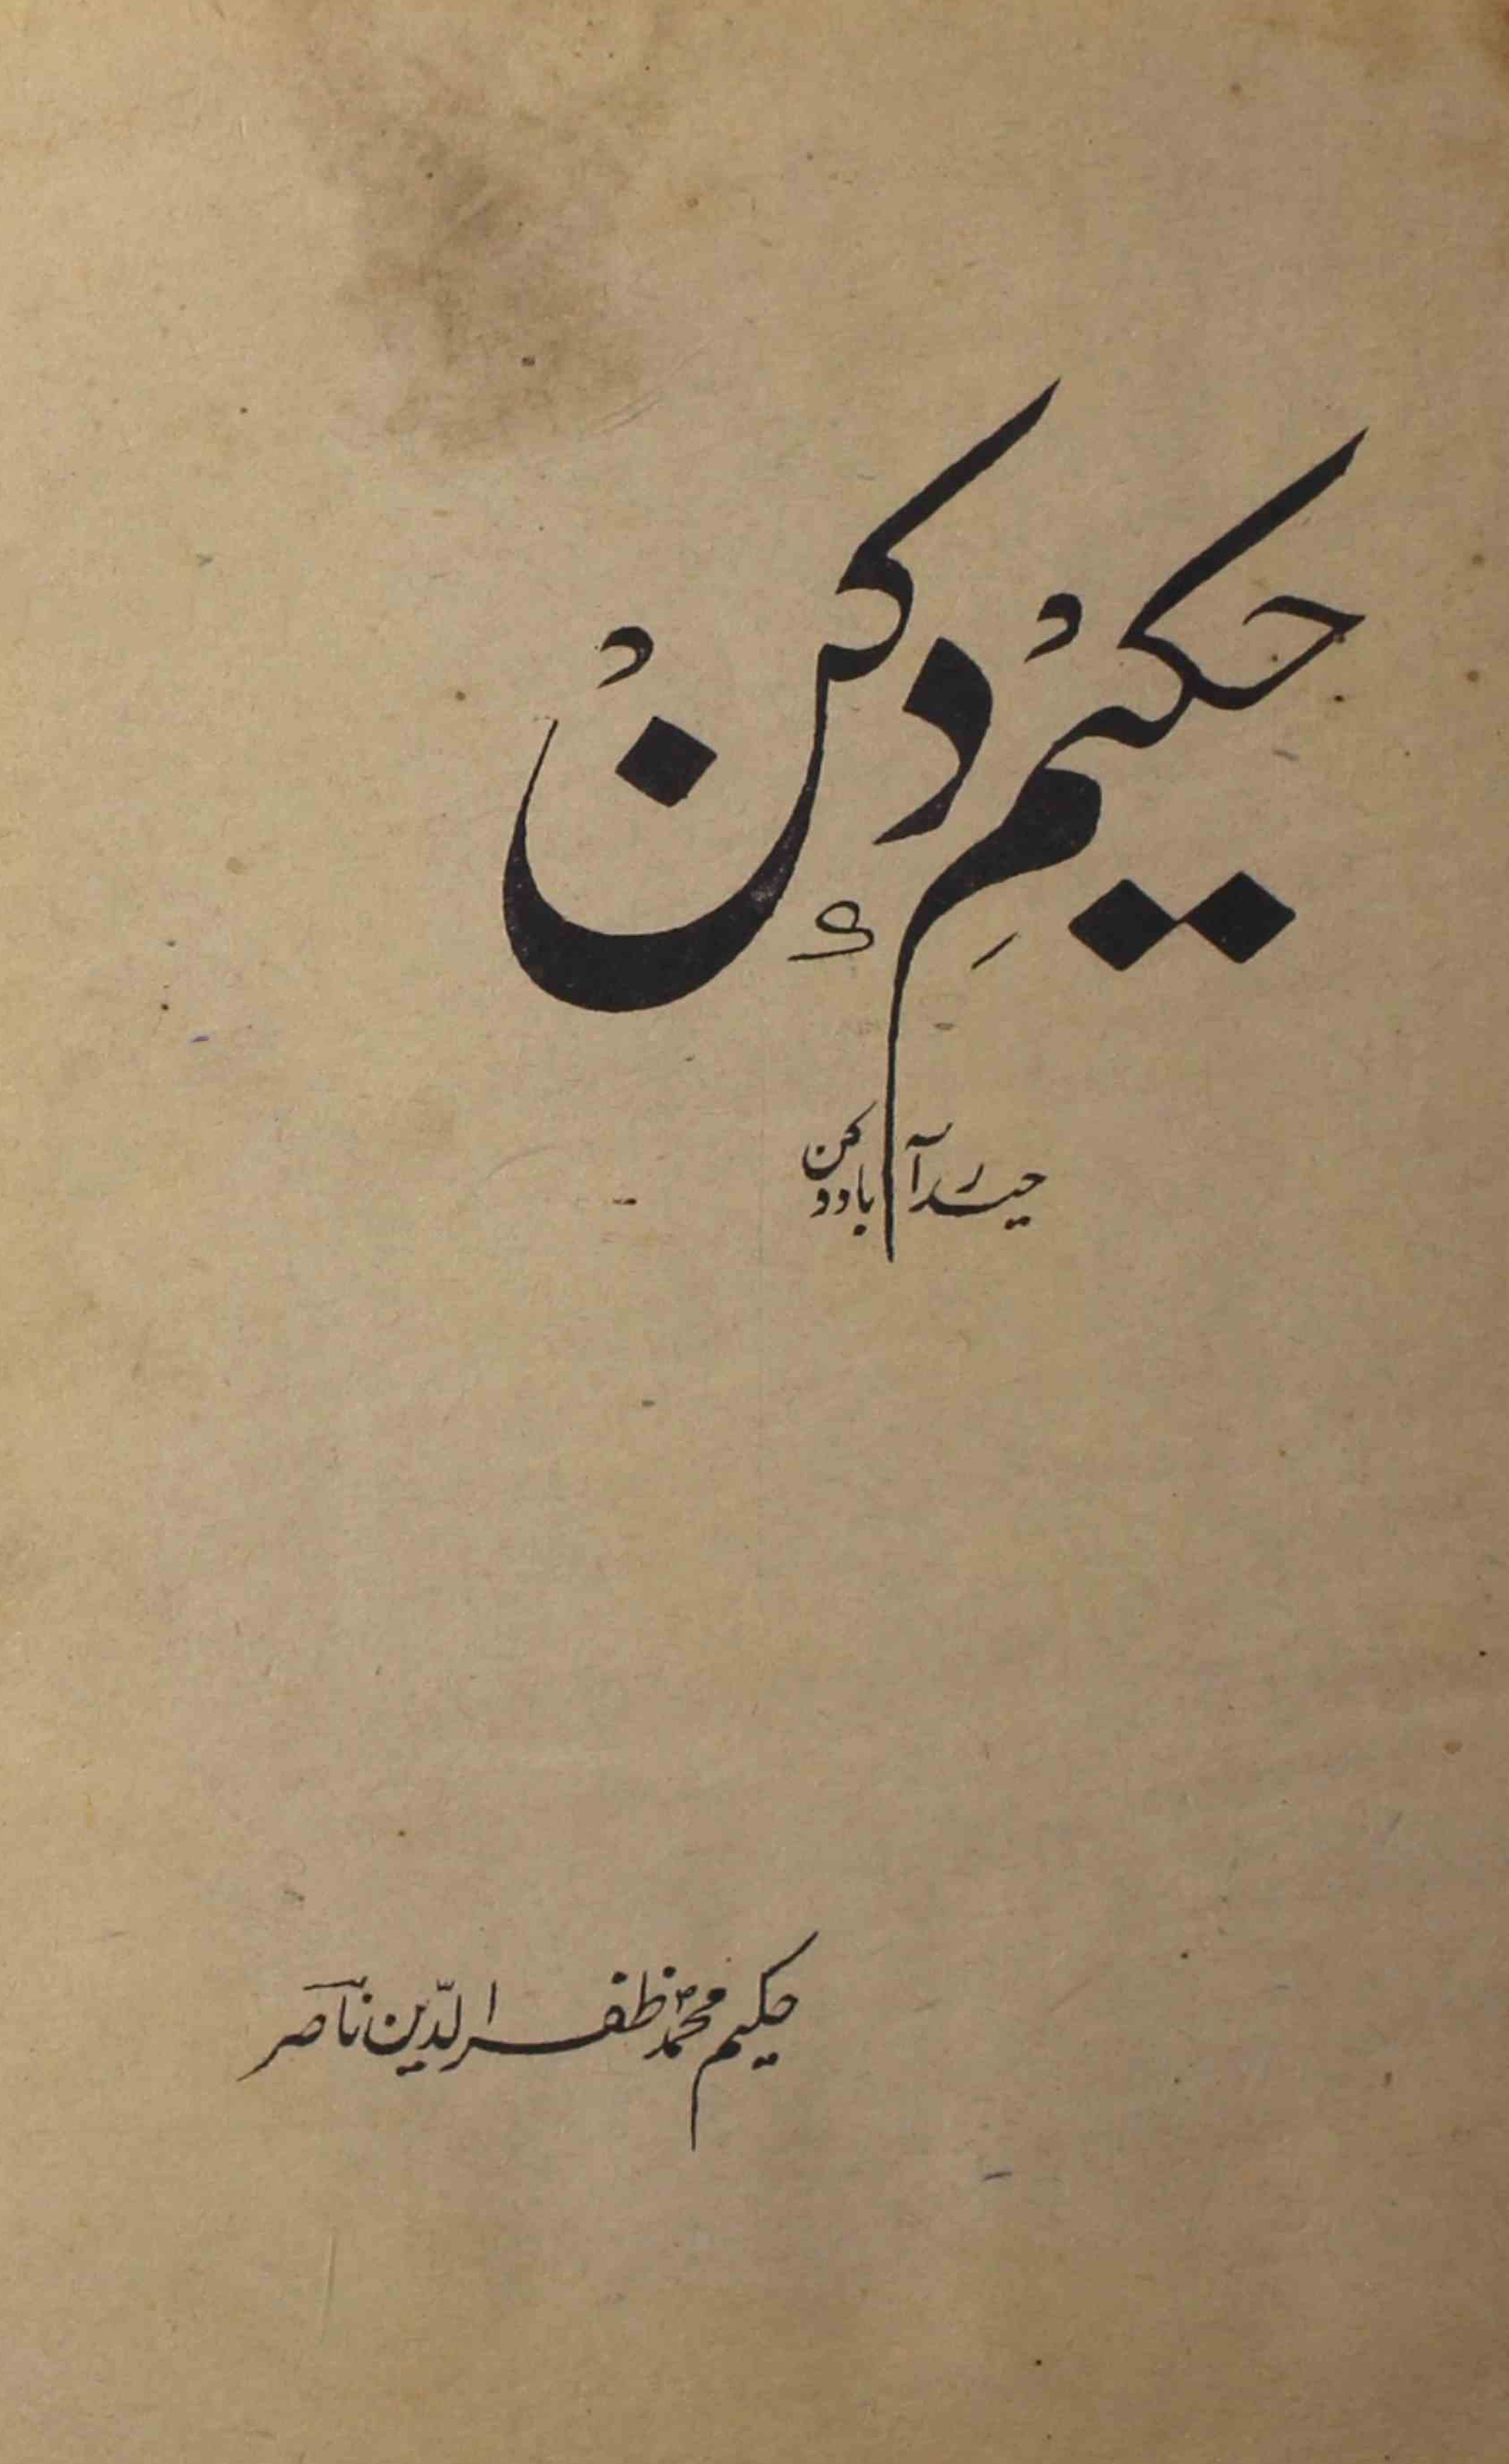 حکیمِ دکن
حیدرآباد دکن
حکیم محمّد ظفر الدّین ناصر